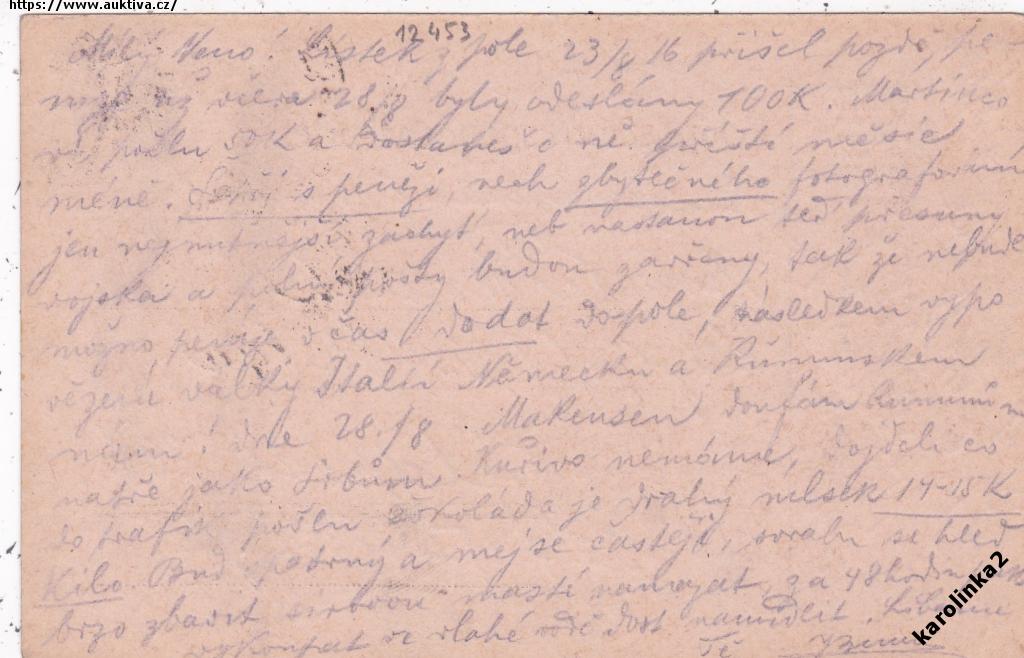 https://www.auktiva.cz/
12453
Milý Heno! Lístek z pole 23/8 16 přišel pozdě, pe-
včera 28/8 byly odeslány 100K. Martinco
pošlu 50K a dostaneš o ně příští měsíc
méně. Šetři s penězi, nech zbytečného fotografování
jen nejnutnější zachyť, neb nastanou teď přesuny
vojska a polní pošty budou zavřeny, tak že nebude
možno peníze včas dodat do pole, následkem vypo
vězení války Italií Německu a Rumunskem
nám! dne 28./8 Makensen doufám Rumunům
natře jako Srbům. Kuřivo nemáme, dojdeli co
do trafik pošlu čokoláda je drahý mlsek 14-15K
Kilo. Buď opatrný a mej se častěji, svrabu se hleď
brzo zbavit sirovou mastí namazat, za 48 hodin
vykoupat ve vlažé vodě dost namydlit. Líbáme
Tě
karolinka2